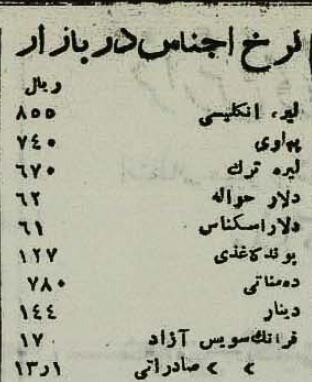 نرخ اجناس در بازار
ریال
لیره انگلیسی ۸۵۵
پهلوی ۷٤۰
لیره ترك ٦۷۰
دلار حواله ٦۲
دلار اسکناس ٦۱
پوند کاغذی ۱۲۷
ده مناتی ۷۸۰
دینار ۱٤٤
فرانك سویس آزاد ۱۷
» » صادراتی ۱۳ر۱